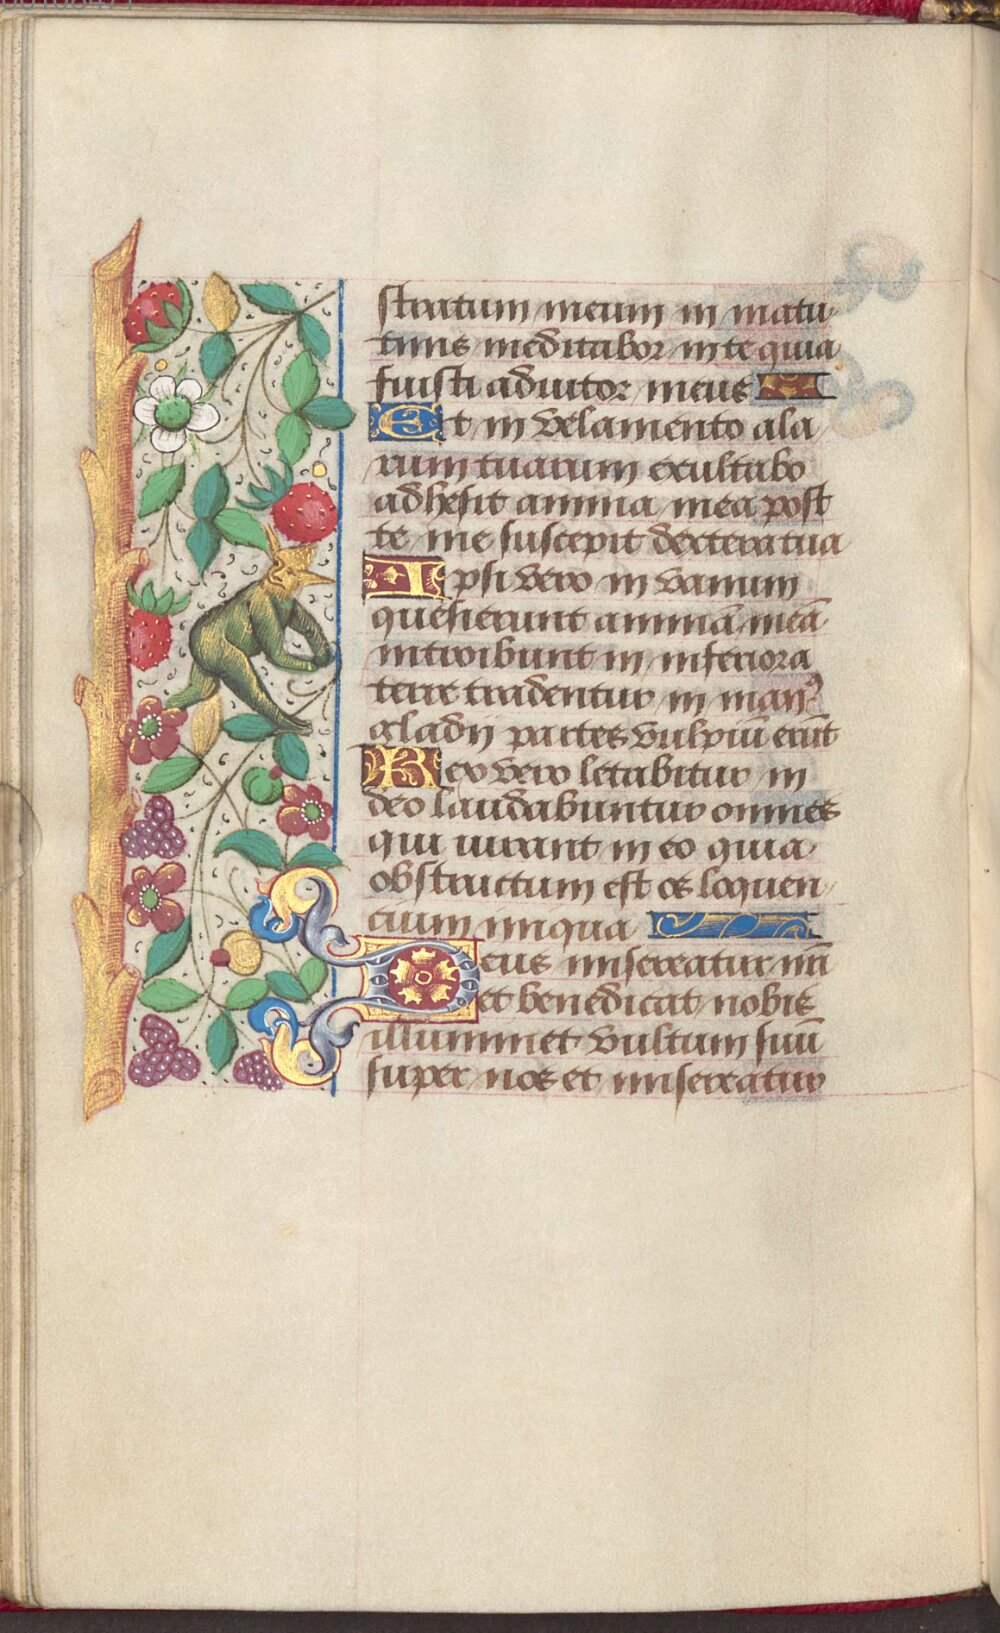 stratum meum in matu
tinis meditabor in te quia
fuisti adiutor meus
Et in velamento ala
rum tuarum exultabo
adhesit anima mea post
te me suscepit dextera tua
Ipsi vero in vanum
quesierunt animā meā
introibunt in inferiora
terre tradentur in manꝰ
gladij partes vulpiū erūt
Rex vero letabitur in
deo laudabuntur omnes
qui iurant in eo quia
obstructum est os loquen
cium iniqua
Deus misereatur nr̄i
et benedicat nobis
illuminet vultum suū
super nos et misereatur